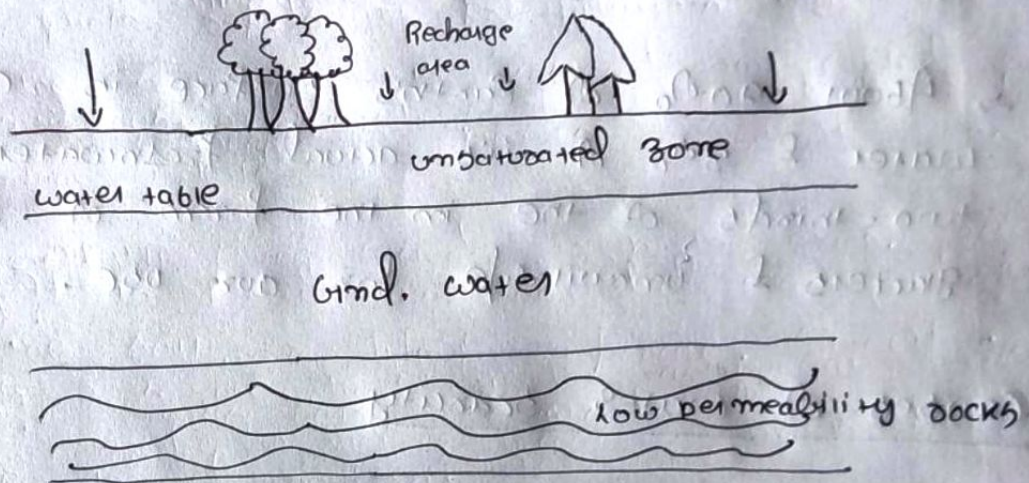 Recharge
area
unsaturated zone
water table
Grnd. water
Low permeability rocks